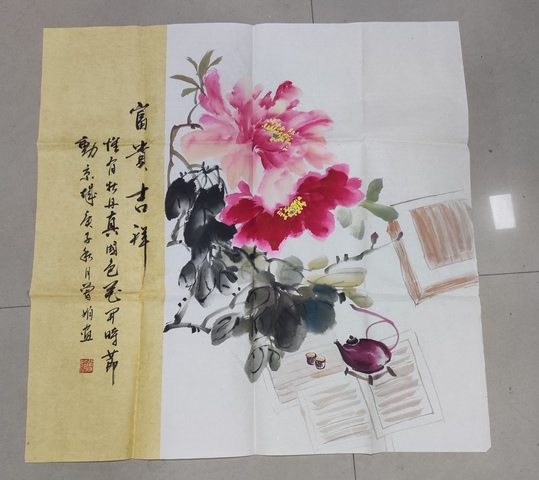 富貴吉祥
惟有牡丹真國色花開時節
動京城庚子秋月